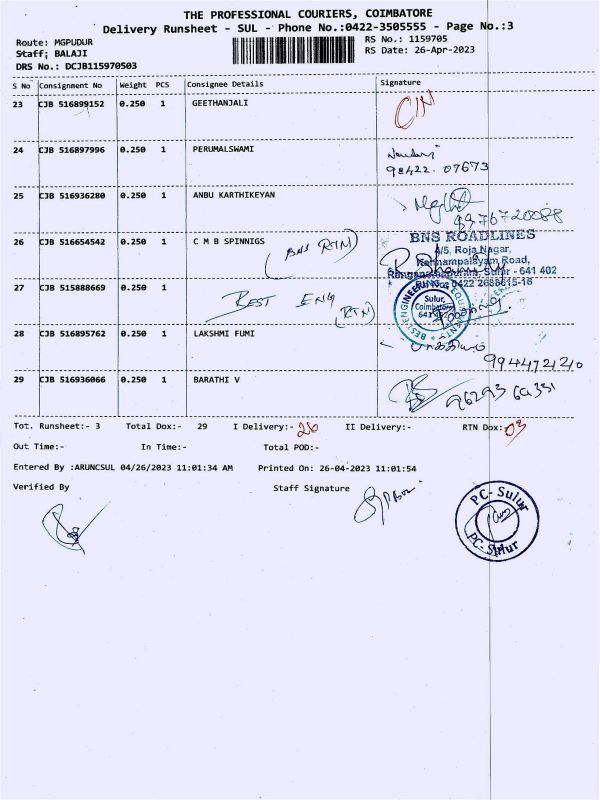 THE PROFESSIONAL COURIERS, COIMBATORE
Delivery Runsheet - SUL - Phone No.:0422-3505555 - Page No.:3
Route: MGPUDUR
RS No.: 1159705
Staff: BALAJI
RS Date: 26-Apr-2023
DRS No.: DCJB115970503
S No Consignment No Weight PCS Consignee Details Signature
23 CJB 516899152 0.250 1 GEETHANJALI
24 CJB 516897996 0.250 1 PERUMALSWAMI
98422 07673
25 CJB 516936280 0.250 1 ANBU KARTHIKEYAN
9976720088
26 CJB 516654542 0.250 1 C M B SPINNIGS (BNS RTN)
BNS ROADLINES
4/5, Roja Nagar,
Road,
Sulur - 641 402
27 CJB 515888669 0.250 1
BEST ENG (RTN)
Sulur,
28 CJB 516895762 0.250 1 LAKSHMI FUMI
29 CJB 516936066 0.250 1 BARATHI V
Tot. Runsheet:- 3 Total Dox:- 29 I Delivery:- 26 II Delivery:- RTN Dox: 03
Out Time:- In Time:- Total POD:-
Entered By :ARUNCSUL 04/26/2023 11:01:34 AM Printed On: 26-04-2023 11:01:54
Verified By Staff Signature
PC- Sulur
PC- Sulur